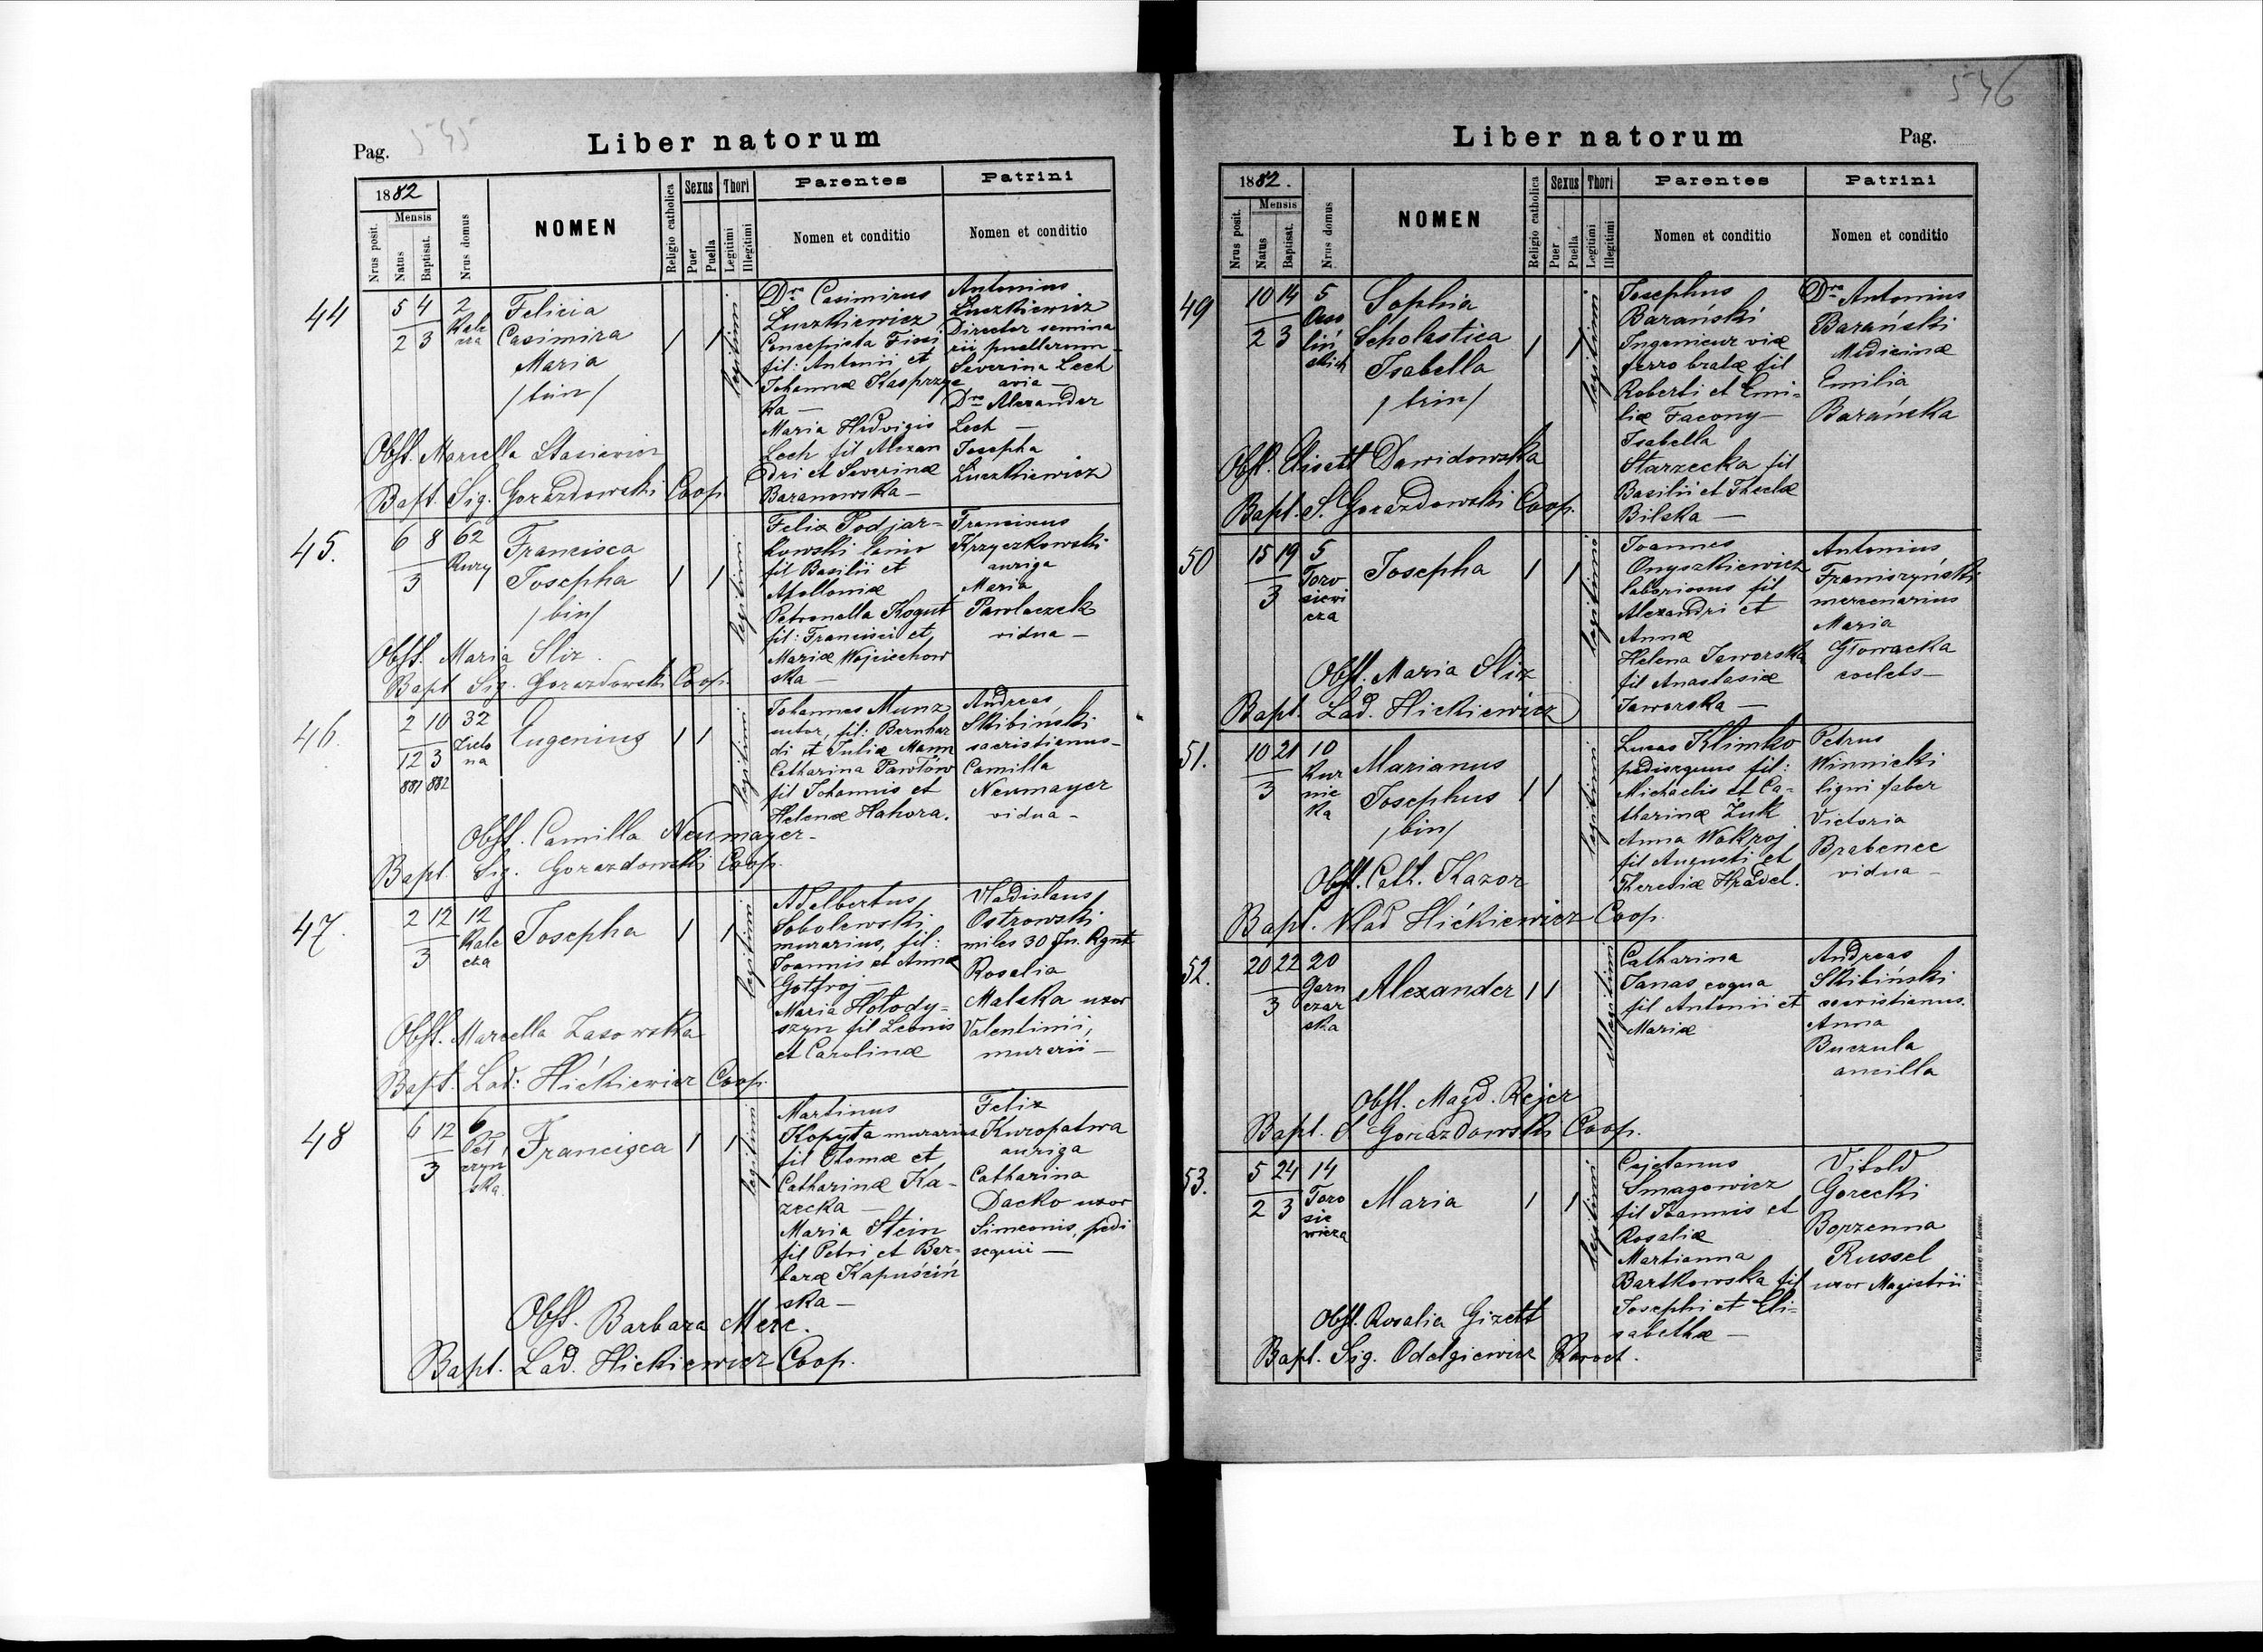 Pag. 545
Liber natorum
1882
Mensis
Nrus posit.
Natus
Baptisat.
Nrus domus
NOMEN
Religio catholica
Sexus
Puer
Puella
Thori
Legitimi
Illegitimi
Parentes
Nomen et conditio
Patrini
Nomen et conditio
44
5 4
2 3
2
Kale
cza
Felicia
Casimira
Maria
/trin/
1 1
legitimi
Drs Casimirus
Łuczkiewicz
Concepista Fisci
fil: Antonii et
Johannæ Kasprzyc
ka —
Maria Hedvigis
Lech fil Alexan
dri et Severinæ
Baranowska —
Antonius
Łuczkiewicz
Director semina
rii puellarum —
Severina Lech
avia —
Drs Alexander
Lech —
Josepha
Łuczkiewicz
Obst. Marcella Stasiewicz
Bapt. Sig. Gorazdowski Coop.
45.
6 8
3
62
Rury
Francisca
Josepha
/bin/
1 1
legitimi
Felix Podjar-
kowski lanio
fil Basilii et
Apolloniæ
Petronella Kogut
fil: Francisci et
Mariæ Wojciechow
ska —
Franciscus
Krzyczkowski
auriga
Maria
Pawlaczek
vidua —
Obst. Maria Sliz
Bapt Sig. Gorazdowski Coop.
46.
2 10
12 3
881 882
32
Zielo
na
Eugenius
1 1
legitimi
Johannes Munz
sutor, fil: Bernhar
di et Juliæ Mann
Catharina Pawłów
fil Johannis et
Helenæ Hahora.
Andreas
Skibiński
sacristianus —
Camilla
Neumayer
vidua —
Obst. Camilla Neumayer —
Bapt. Sig. Gorazdowski Coop.
47.
2 12
3
12
Kale
cza
Josepha
1 1
legitimi
Adelbertus
Sobolewski
murarius, fil:
Joannis et Annæ
Gotfroj —
Maria Hołody-
szyn fil Leonis
et Carolinæ
Vladislaus
Ostrowski
miles 30 Jn. Rgnt
Rosalia
Malska uxor
Valentinii,
murarii —
Obst. Marcella Lasowska
Bapt. Lad: Hićkiewicz Coop.
48
6 12
3
6
Peł
czyn
ska.
Francisca
1 1
legitimi
Martinus
Kopyta murarius
fil Thomæ et
Catharinæ Ka-
zecka —
Maria Stein
fil Petri et Bar-
baræ Kapuściń
ska —
Felix
Kuropatwa
auriga
Catharina
Dacko uxor
Simeonis, pedi
sequii —
Obst. Barbara Merc.
Bapt. Lad. Hickiewicz Coop.
546
Liber natorum
Pag.
1882.
Mensis
Nrus posit.
Natus
Baptisat.
Nrus domus
NOMEN
Religio catholica
Sexus
Puer
Puella
Thori
Legitimi
Illegitimi
Parentes
Nomen et conditio
Patrini
Nomen et conditio
49
10 14
2 3
5
Osso
liń
skich
Sophia
Scholastica
Isabella
/trin/
1 1
legitimi
Josephus
Barański
Ingenieur viæ
ferro bratæ fil
Roberti et Emi-
liæ Facony —
Isabella
Starzecka fil
Basilii et Theclæ
Bilska —
Drs Antonius
Barański
Medicinæ
Emilia
Barańska
Obst. Elisett Dawidowska
Bapt. S. Gorazdowski Coop.
50
15 19
3
5
Toro
siewi
cza
Josepha
1 1
legitimi
Joannes
Onyszkiewicz
laboriosus fil
Alexandri et
Annæ
Helena Jaworska
fil Anastasiæ
Jaworska —
Antonius
Franiszyński
mercenarius
Maria
Głowacka
coelebs —
Obst. Maria Sliz
Bapt. Lad. Hickiewicz
51.
10 21
3
10
Kur
nic
ka
Marianus
Josephus
/bin/
1 1
legitimi
Lucas Klimko
pedisequus fil:
Michaelis et Ca-
tharinæ Żuk
Anna Wokroj
fil Augusti et
Theresiæ Hradel.
Petrus
Winnicki
ligni faber
Victoria
Brabenec
vidua —
Obst. Cath. Kazor
Bapt. Vlad Hićkiewicz Coop.
52.
20 22
3
20
Garn
czar
ska
Alexander
1 1
illegitimi
Catharina
Janas coqua
fil Antonii et
Mariæ
Andreas
Skibiński
sacristianus.
Anna
Buczula
ancilla
Obst. Magd. Rejer
Bapt. S Gorazdowski Coop.
53.
5 24
2 3
14
Toro
sie
wicza
Maria
1 1
legitimi
Cajetanus
Smagowicz
fil Joannis et
Rosaliæ
Martianna
Bartkowska fil
Josephi et Eli-
sabethæ —
Vitold
Gorecki
Borzenna
Russel
uxor Magistrii
Obst. Rosalia Gizett
Bapt. Sig. Odelgiewicz Paroch.
Nakładem Drukarni Ludowej we Lwowie.